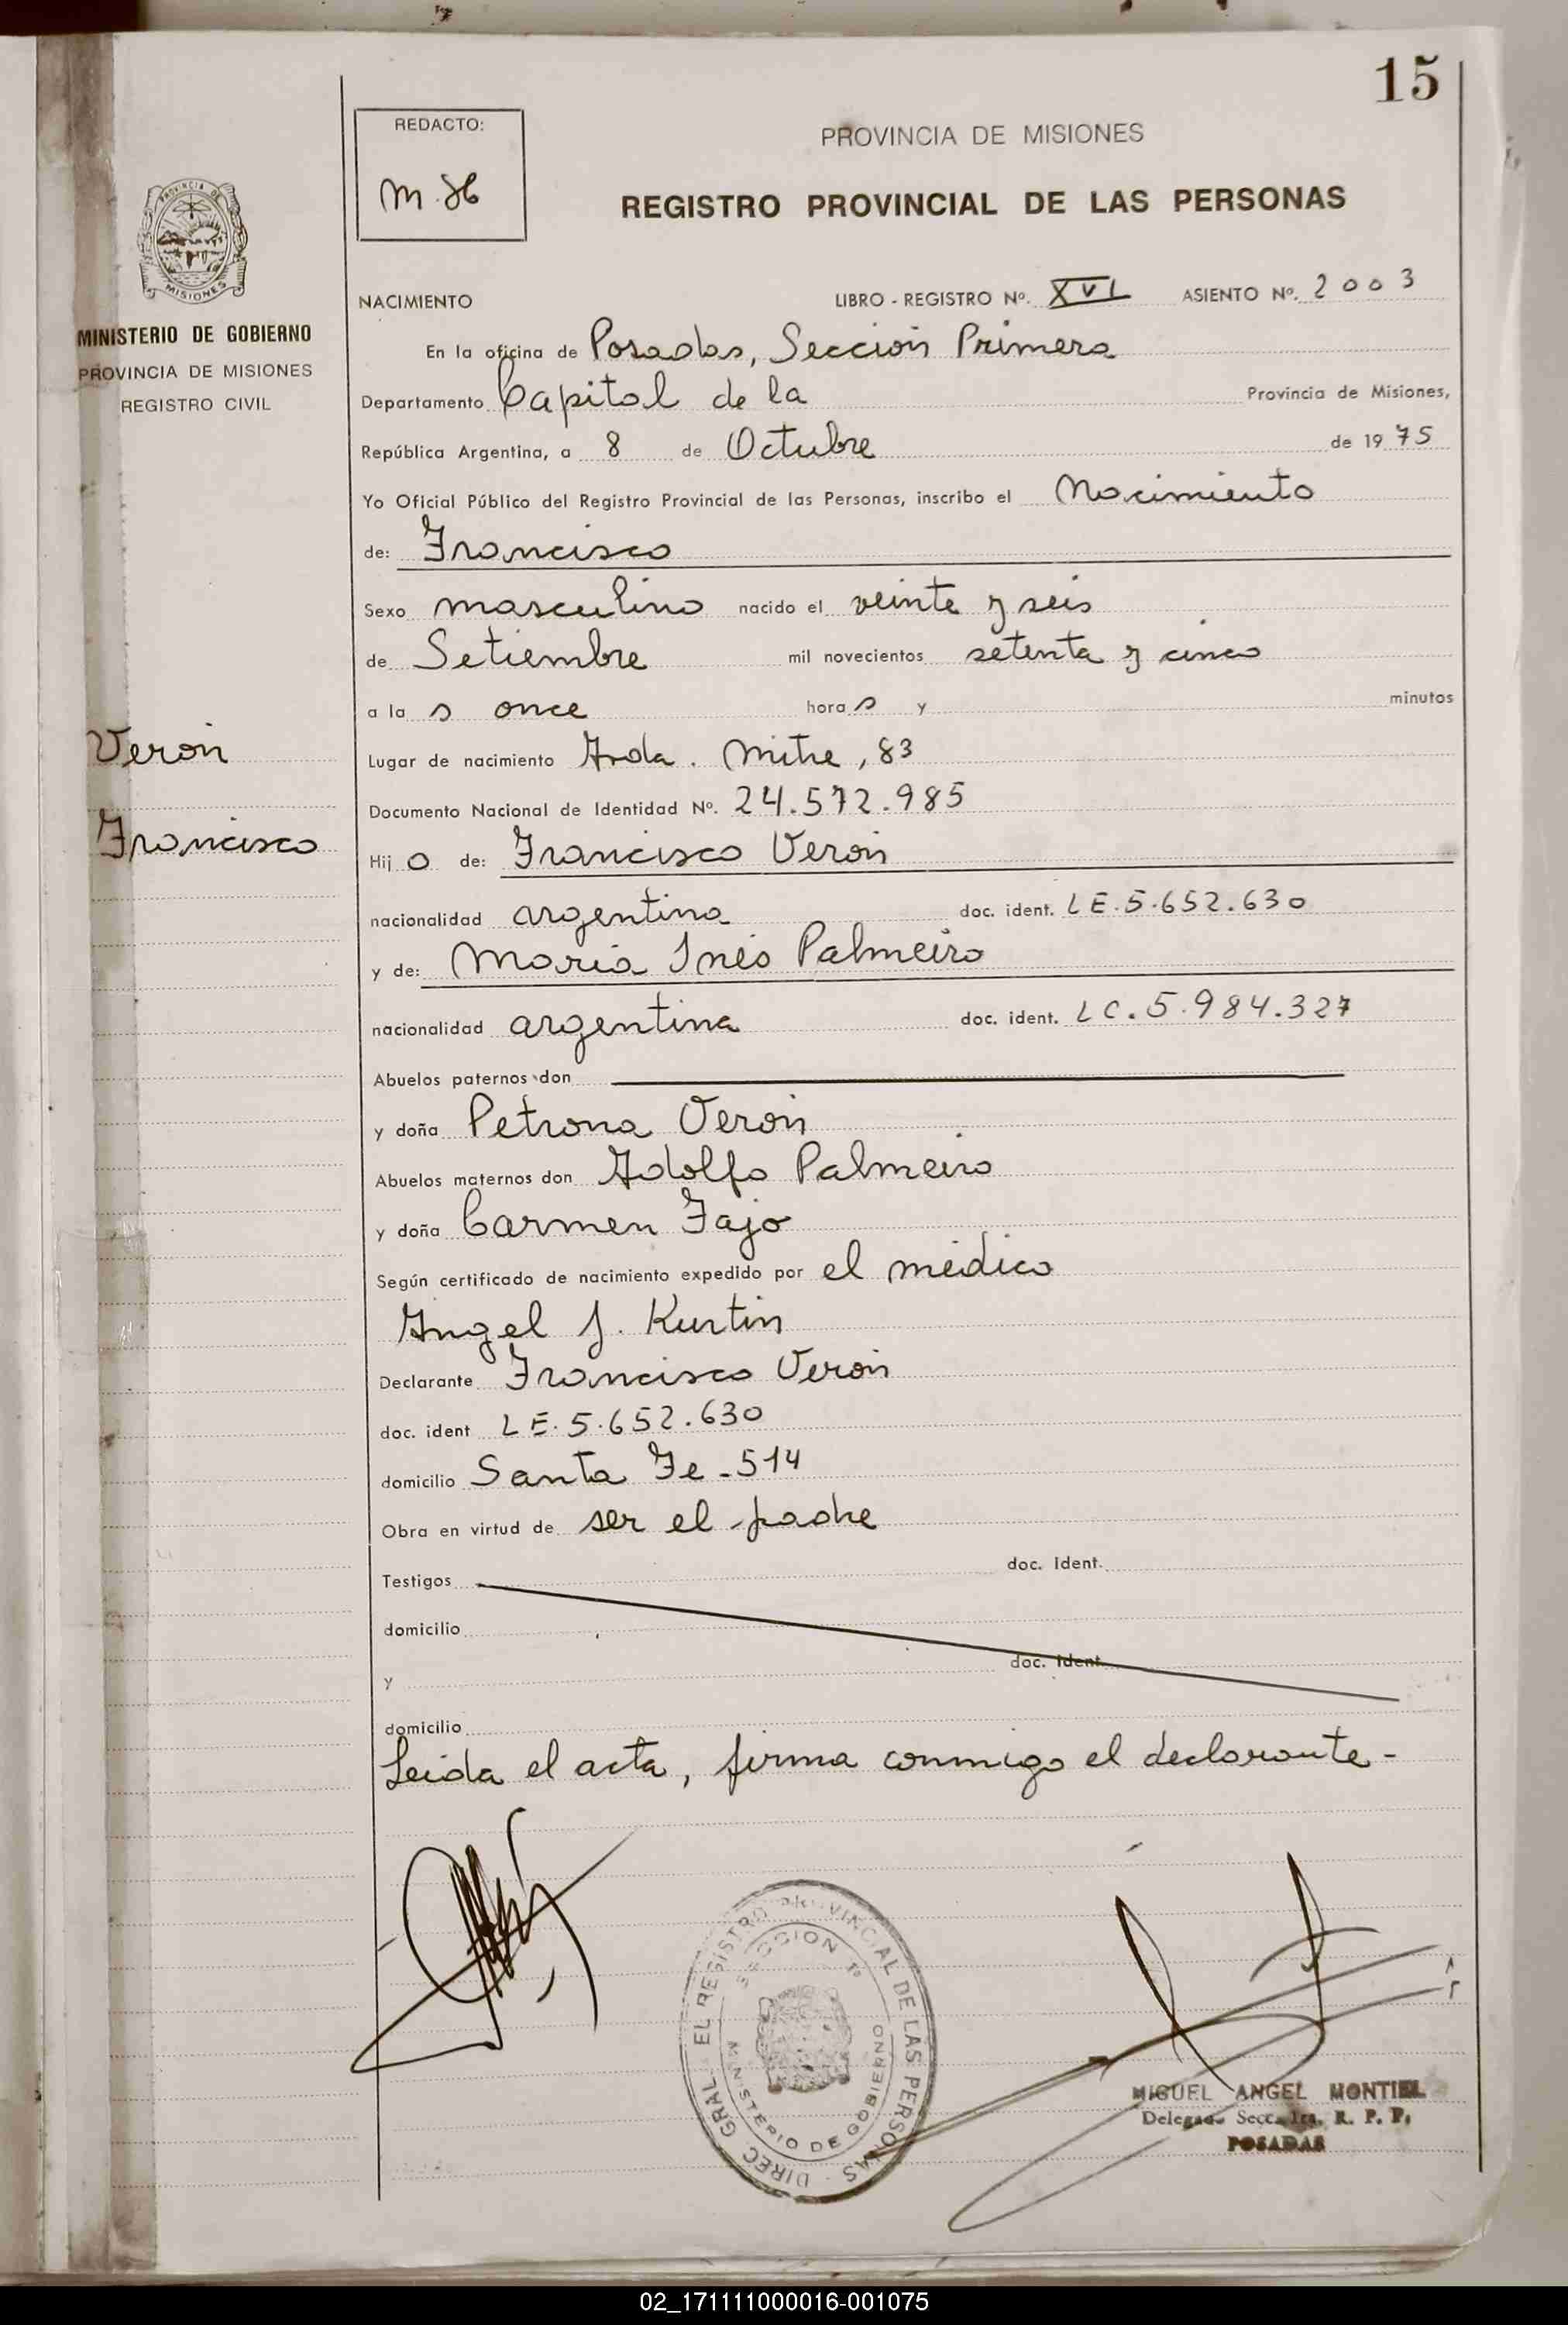 15
REDACTO:
PROVINCIA DE MISIONES
REGISTRO PROVINCIAL DE LAS PERSONAS
PROVINCIA DE
MISIONES
MINISTERIO DE GOBIERNO
PROVINCIA DE MISIONES
REGISTRO CIVIL
NACIMIENTO LIBRO - REGISTRO Nº. XVI ASIENTO Nº. 2003
En la oficina de Posadas, Sección Primera
Departamento Capital de la Provincia de Misiones,
República Argentina, a 8 de Octubre de 1975
Yo Oficial Público del Registro Provincial de las Personas, inscribo el Nacimiento
de: Francisco
Sexo masculino nacido el veinte y seis
de Setiembre mil novecientos setenta y cinco
a la s once hora s y minutos
Veron
Lugar de nacimiento Avda. Mitre, 83
Documento Nacional de Identidad Nº. 24.572.985
Francisco
Hij o de: Francisco Veron
nacionalidad argentina doc. ident. LE.5.652.630
y de: Maria Inés Palmeiro
nacionalidad argentina doc. ident. LC.5.984.327
Abuelos paternos don
y doña Petrona Veron
Abuelos maternos don Adolfo Palmeiro
y doña Carmen Fajo
Según certificado de nacimiento expedido por el médico
Angel J. Kurtin
Declarante Francisco Veron
doc. ident LE.5.652.630
domicilio Santa Fe - 514
Obra en virtud de ser el padre
Testigos doc. ident.
domicilio
y doc. ident.
domicilio
Leida el acta, firma conmigo el declarante -
DIREC. GRAL. EL REGISTRO PROVINCIAL DE LAS PERSONAS
SECCION 1º
MINISTERIO DE GOBIERNO
MIGUEL ANGEL MONTIEL
Delegado Secc. 1ra. R. P. P.
POSADAS
02_171111000016-001075